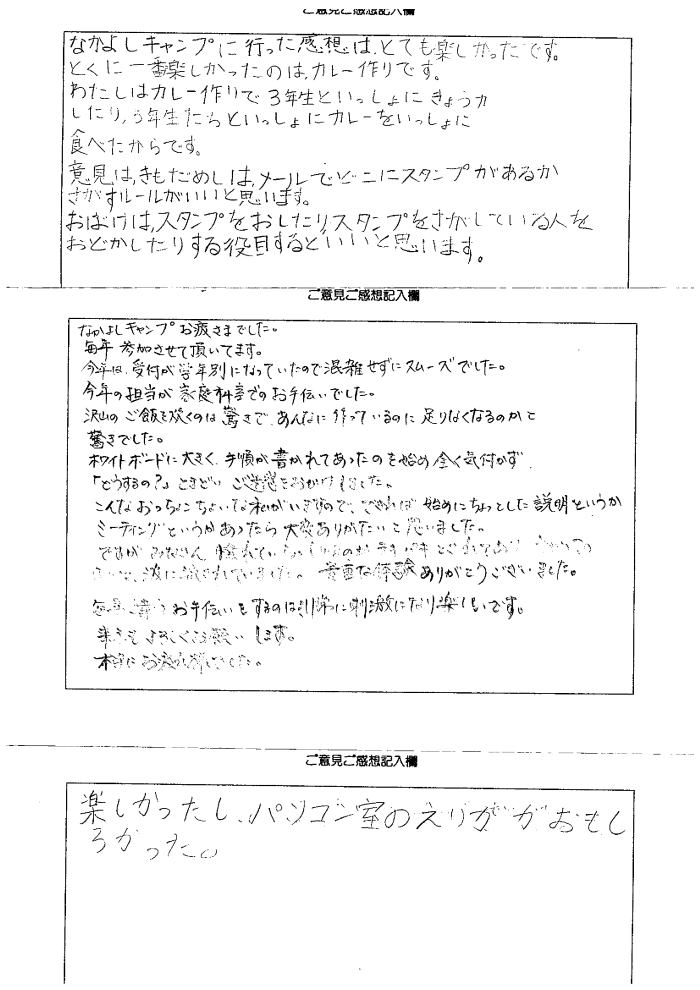 ご意見ご感想記入欄
なかよしキャンプに行った感想は、とても楽しかったです。
とくに一番楽しかったのは、カレー作りです。
わたしはカレー作りで3年生といっしょにきょうカ
したり、3年生たちといっしょにカレーをいっしょに
食べたからです。
意見は、きもだめしは、メールでどこにスタンプがあるか
さがすルールがいいと思います。
おばけは、スタンプをおしたりスタンプをさがしている人を
おどかしたりする役目するといいと思います。
ご意見ご感想記入欄
なかよしキャンプお疲さまでした。
毎年 参加させて頂いてます。
今年は、受付が学年別になっていたので混雑せずにスムーズでした。
今年の担当が家庭科室でのお手伝いでした。
沢山のご飯を炊くのは驚きで、あんなに作っているのに足りなくなるのかと
驚きでした。
ホワイトボードに大きく、手順が書かれてあったのを始め全く気付かず
「どうするの?」ときどいご迷惑をおかけしました。
こんなおっちょこちょいな私がいますので、できれば始めにちょっとした説明というか
ミーティングというかあったら大変ありがたいと思いました。
ですが みなさん
貴重な体験ありがとうございました。
毎年、違うお手伝いをするのは非常に刺激になり楽しいです。
来年もよろしくお願いします。
本当にお疲れ様でした。
ご意見ご感想記入欄
楽しかったし、パソコン室のえいががおもし
ろかった。